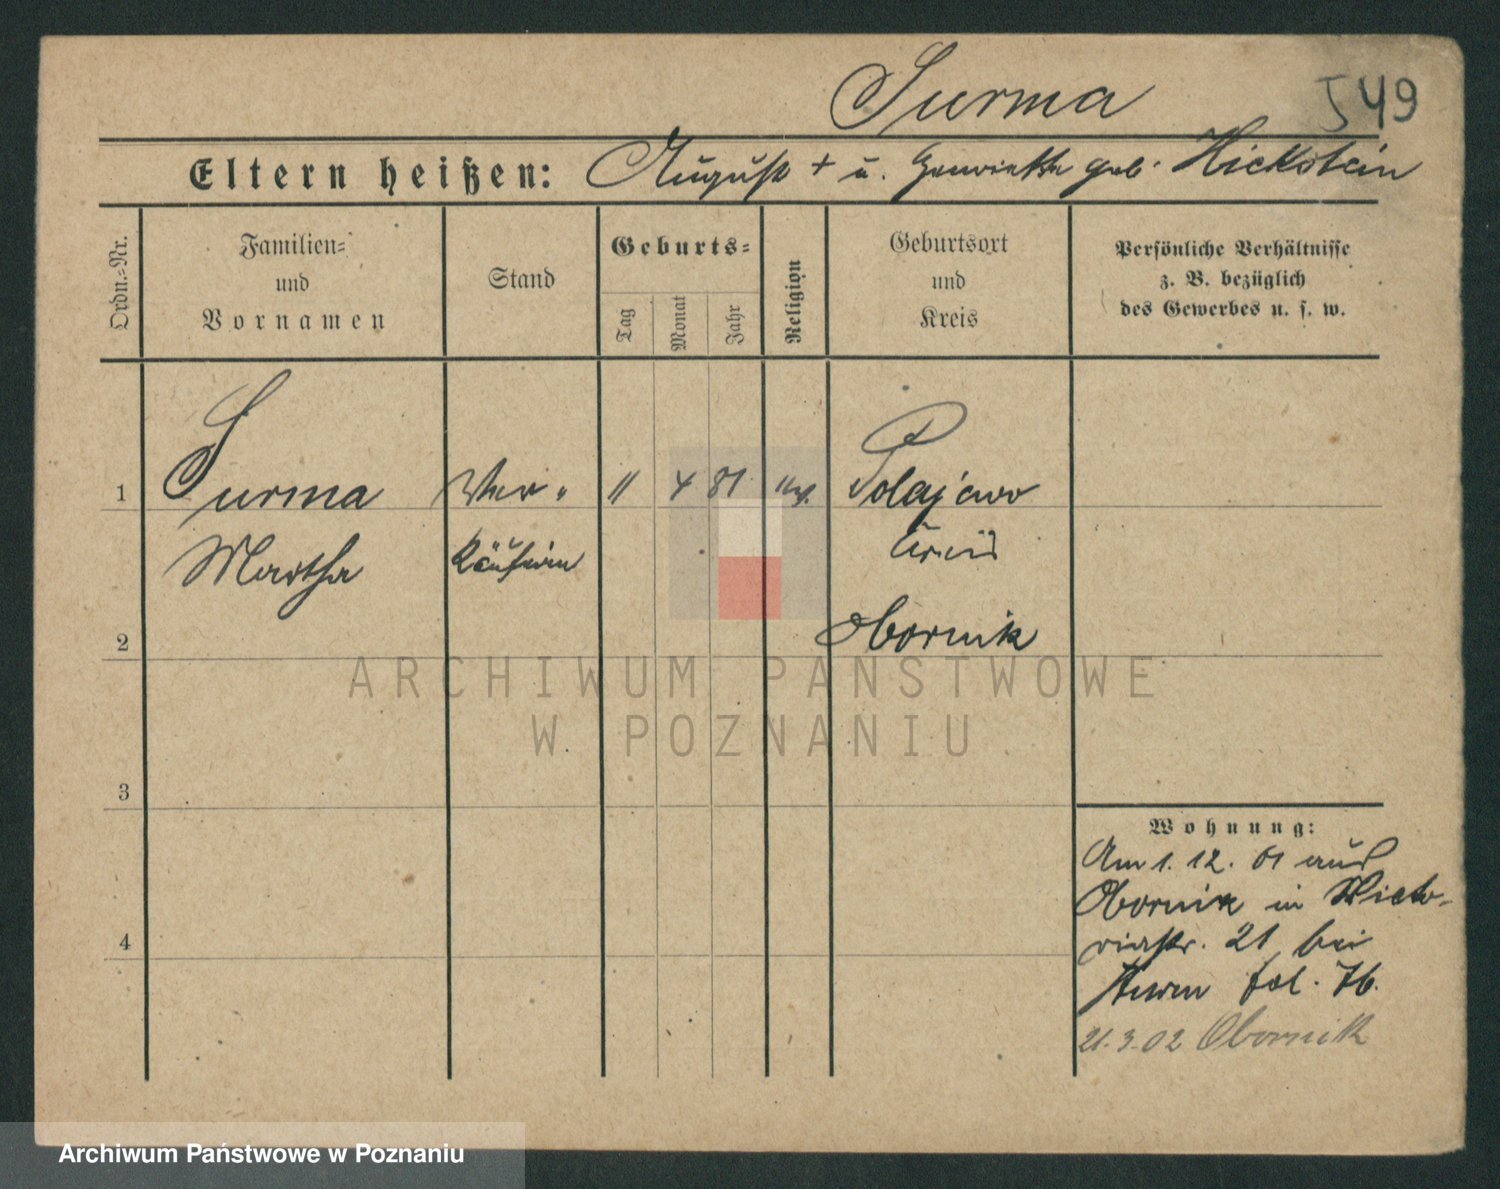 Surma
549
Eltern heißen: August + u. Henriette geb. Hickstein
Ordn.=Nr.
Familien=
und
Vornamen
Stand
Geburts=
Tag
Monat
Jahr
Religion
Geburtsort
und
Kreis
Persönliche Verhältnisse
z. B. bezüglich
des Gewerbes u. s. w.
1
Surma
Martha
Ver-
käuferin
11
4
81
ev.
Polajewo
Kreis
Obornik
2
3
4
Wohnung:
Am 1. 12. 01 aus
Obornik in Victo-
riastr. 21 bei
Sturm fol. 76.
21.3.02 Obornik
ARCHIWUM PAŃSTWOWE
W POZNANIU
Archiwum Państwowe w Poznaniu